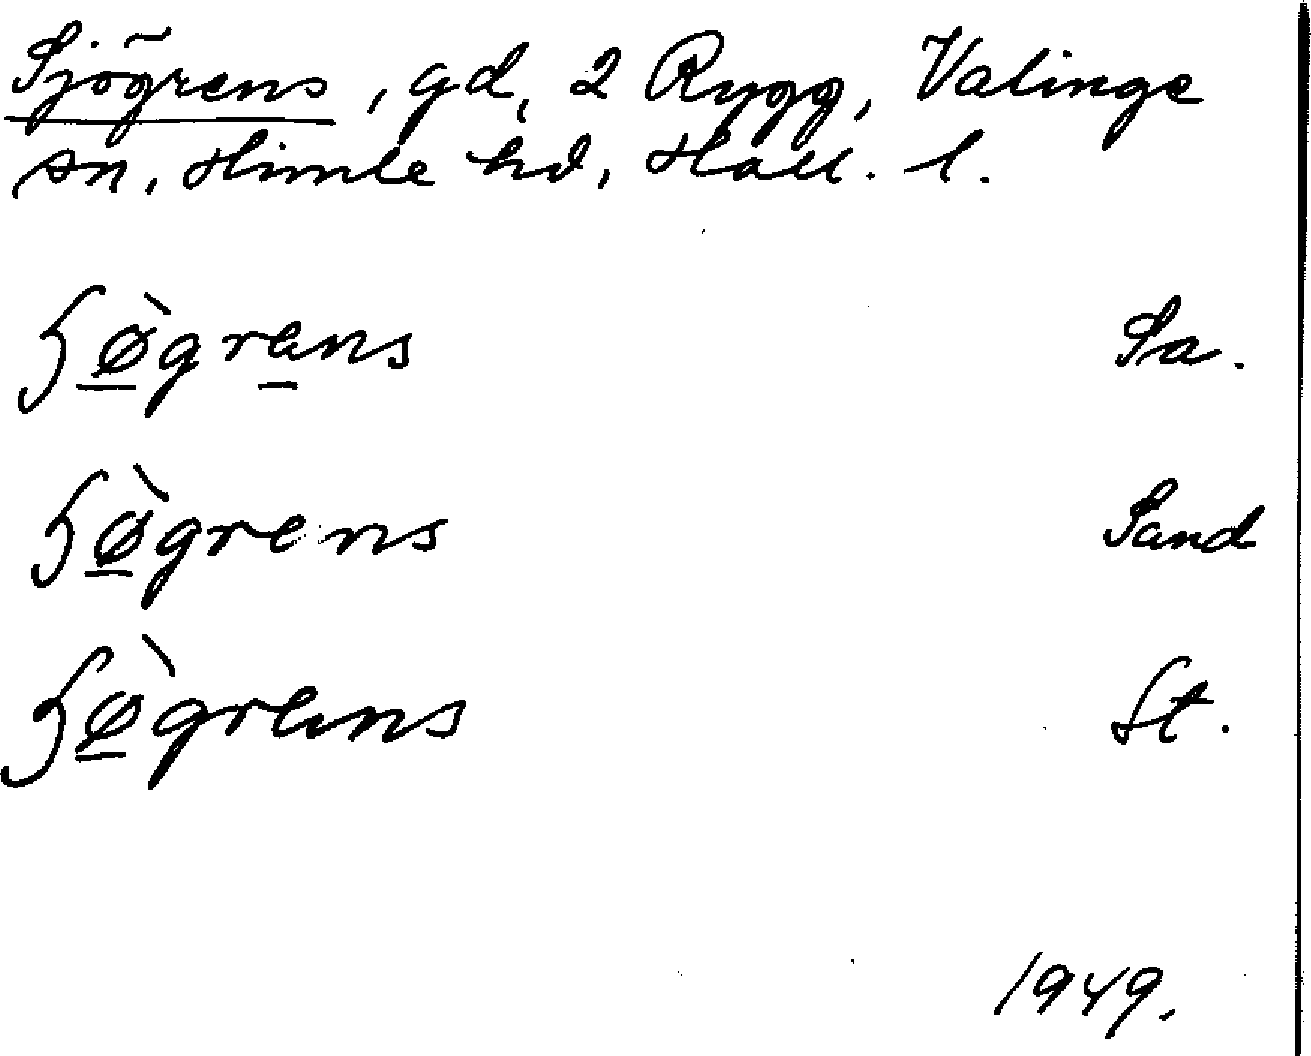 Sjögrens, gd, 2 Rygg, Valinge
sn, Himle hd, Hall. l.
ɧø̀grəns Sa.
ɧø̀grens Sand
ɧø̀grens St.
1949.